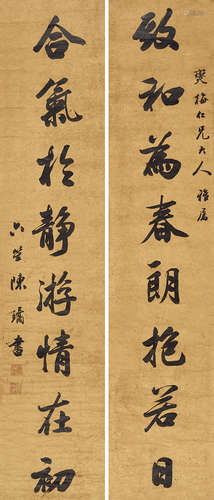 燮梅仁兄大人雅屬
致和為春朗抱若日
合氣於靜游情在初
六笙陳璚書